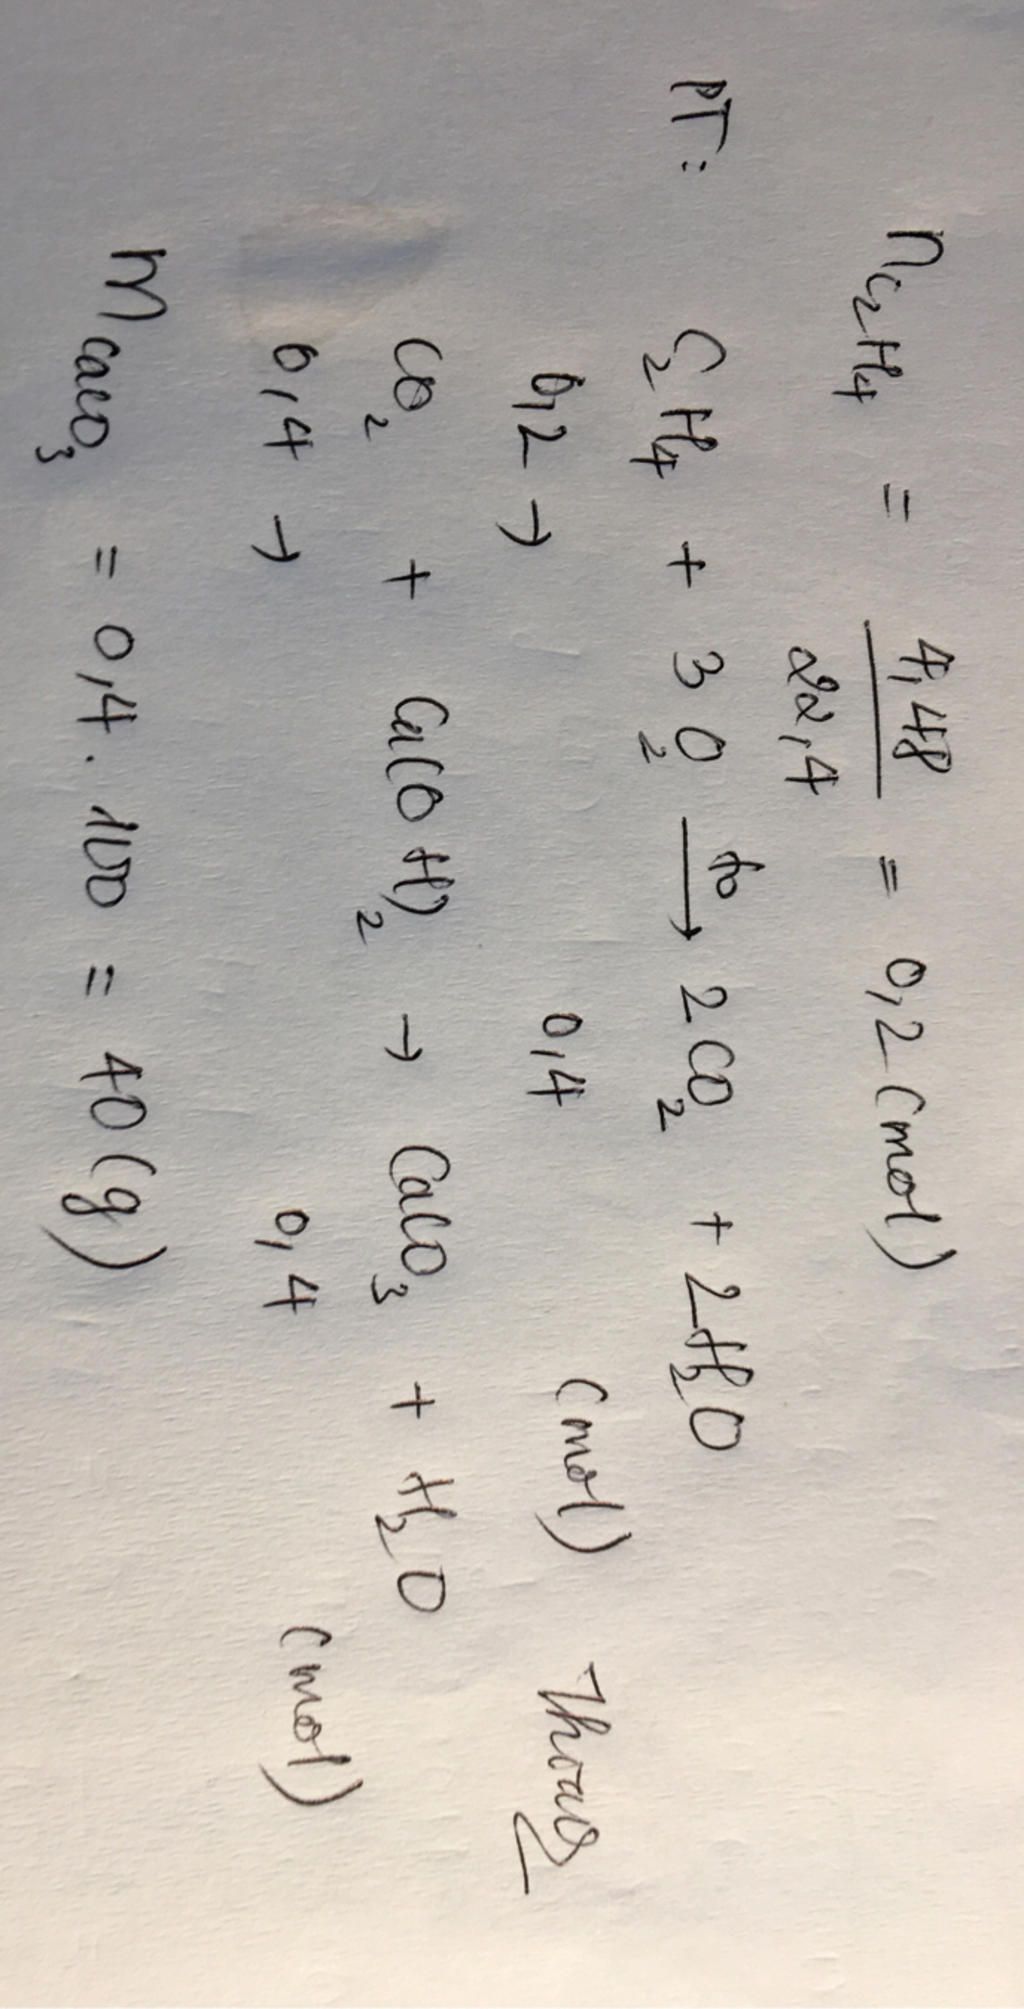 n C₂H₄ = 4,48 / 22,4 = 0,2 (mol)
PT: C₂H₄ + 3 O₂ —t⁰→ 2 CO₂ + 2H₂O
0,2 → 0,4 (mol)
CO₂ + Ca(OH)₂ → CaCO₃ + H₂O
0,4 → 0,4 (mol)
m CaCO₃ = 0,4 . 100 = 40 (g)